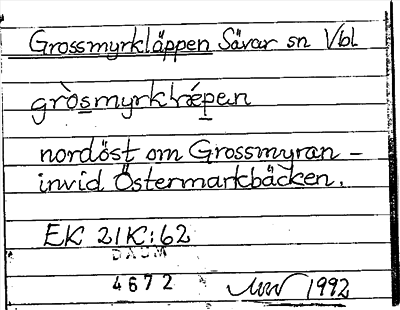 Grossmyrkläppen Sävar sn Vbl
nordöst om Grossmyran -
invid Östermarkbäcken.
EK 21K:62
DAUM
4672
1992